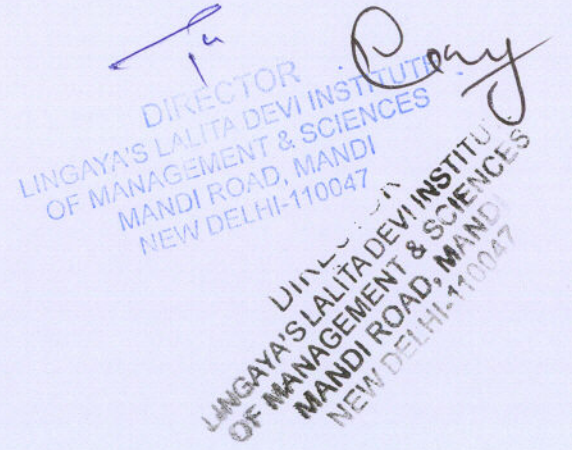 DIRECTOR
LINGAYA'S LALITA DEVI INSTITUTE
OF MANAGEMENT & SCIENCES
MANDI ROAD, MANDI
NEW DELHI-110047
LINGAYA'S LALITA DEVI INSTITU
OF MANAGEMENT & SCIENCES
MANDI ROAD, MAND
NEW DELHI-110047